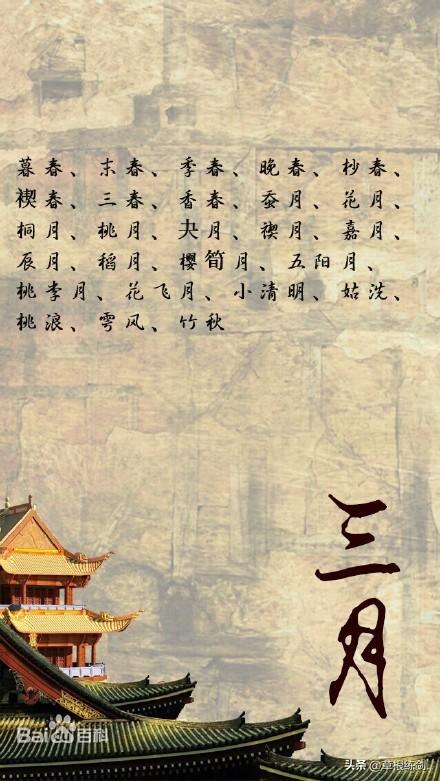 暮春、末春、季春、晚春、杪春、
禊春、三春、香春、蚕月、花月、
桐月、桃月、夬月、禊月、嘉月、
辰月、稻月、樱筍月、五阳月、
桃李月、花飞月、小清明、姑洗、
桃浪、雩风、竹秋
三月
Bai百科
头条 @草根练剑